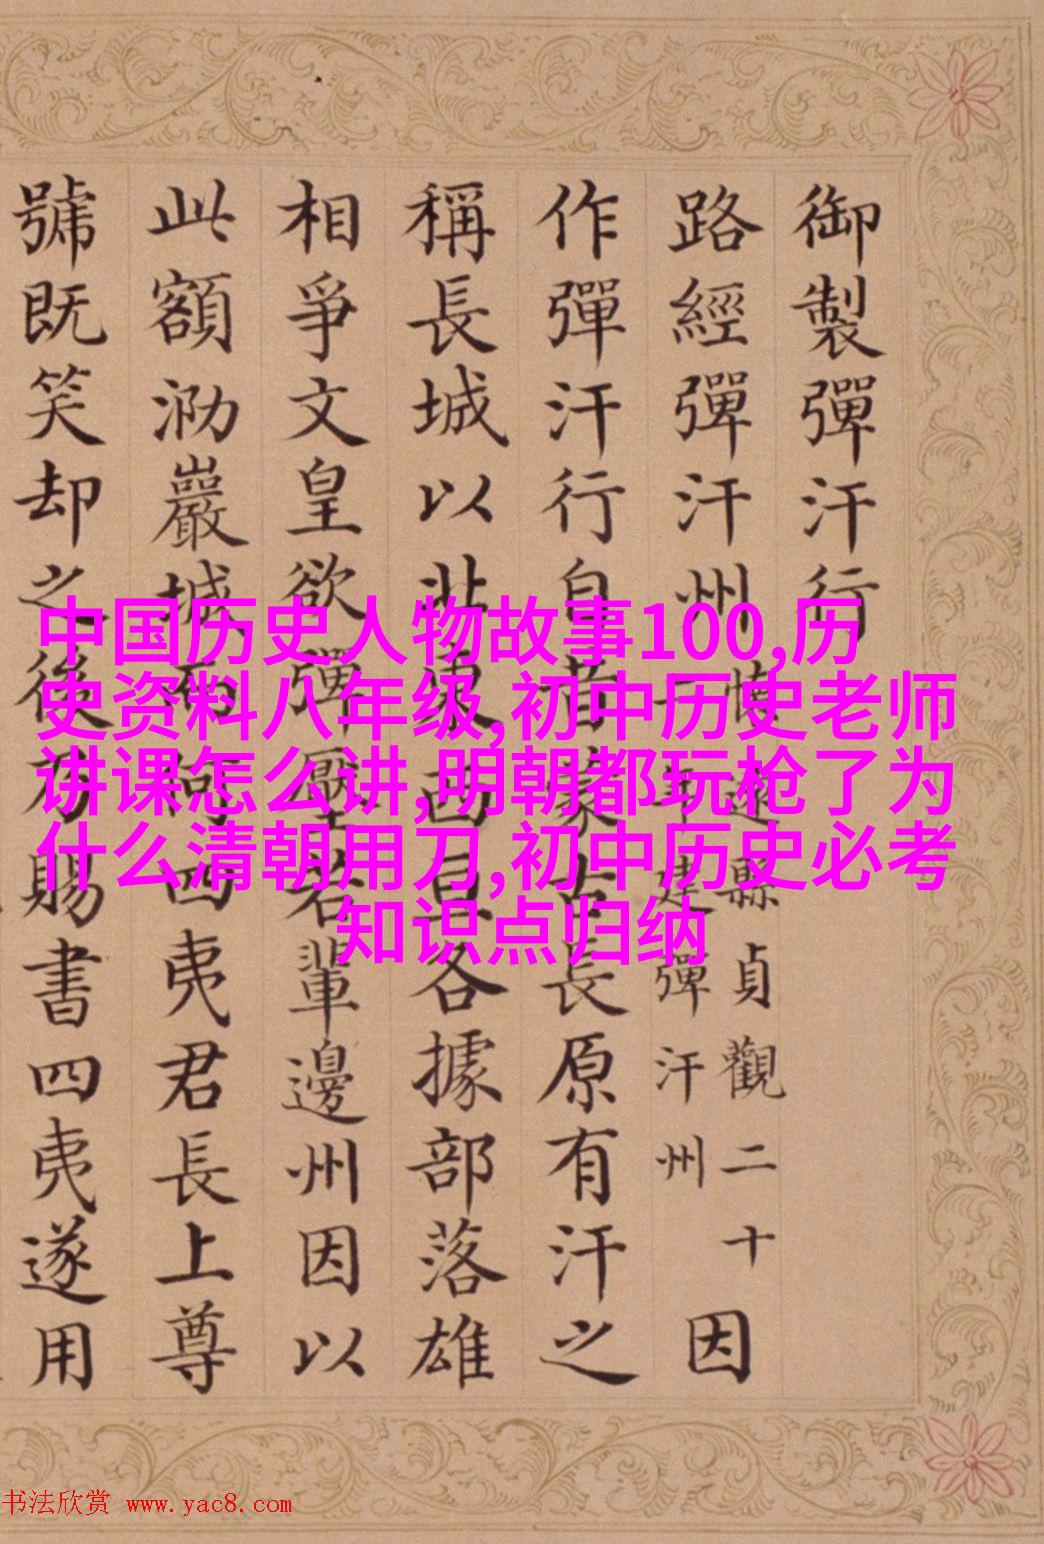 御製彈汗行
路經彈汗州
慎遠縣貞觀二十
一年建彈汗州
因
作彈汗行自昔蒙古長原有汗之
稱長城以北東西亘各據部落雄
相爭文皇欲彈壓若輩邊州因以
此額泐巖城四夷君長上尊
號既笑却之後乃賜書四夷遂用
中国历史人物故事100,历
史资料八年级,初中历史老师
讲课怎么讲,明朝都玩枪了为
什么清朝用刀,初中历史必考
知识点归纳
书法欣赏 www.yac8.com